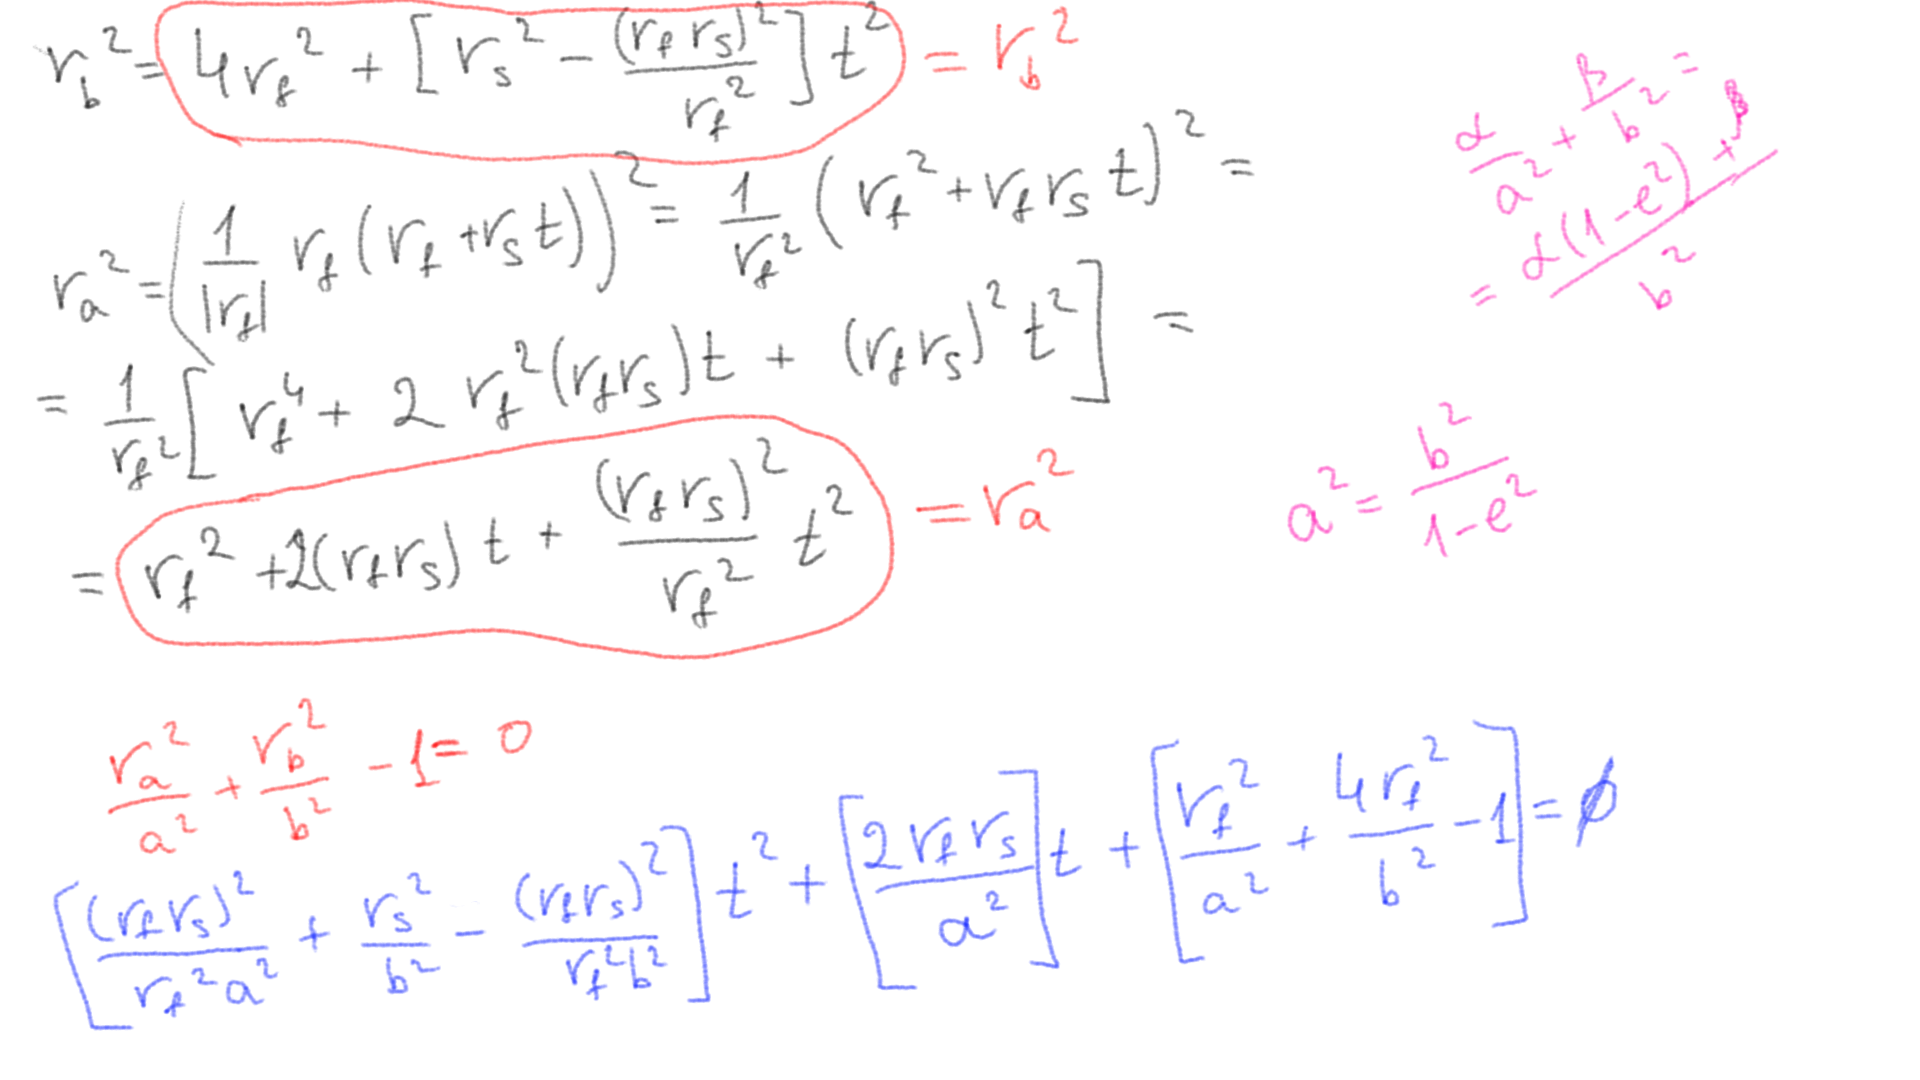 r_b² = 4r_f² + [r_s² - (r_f r_s)²/r_f²] t² = r_b²
r_a² = (1/|r_f| r_f (r_f + r_s t))² = 1/r_f² (r_f² + r_f r_s t)² =
= 1/r_f² [r_f⁴ + 2 r_f² (r_f r_s) t + (r_f r_s)² t²] =
= r_f² + 2(r_f r_s) t + (r_f r_s)²/r_f² t² = r_a²
α/a² + β/b² =
= α(1-e²) + β / b²
a² = b²/1-e²
r_a²/a² + r_b²/b² - 1 = 0
[(r_f r_s)²/r_f² a² + r_s²/b² - (r_f r_s)²/r_f² b²] t² + [2 r_f r_s/a²] t + [r_f²/a² + 4r_f²/b² - 1] = 0